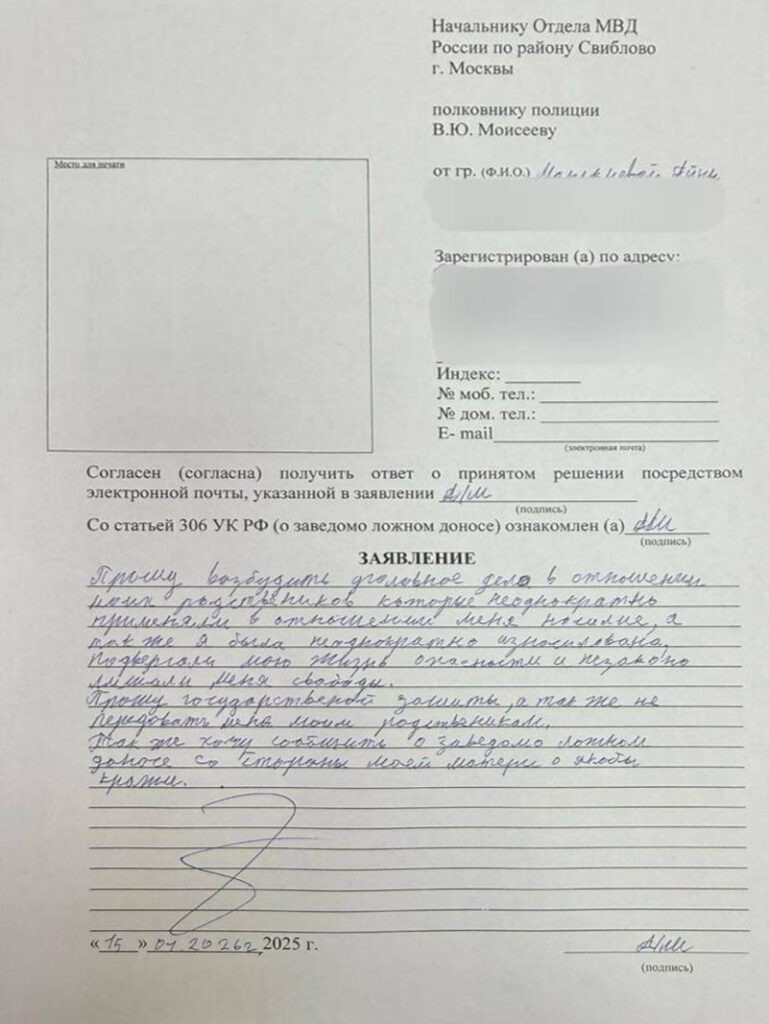 Начальнику Отдела МВД
России по району Свиблово
г. Москвы
полковнику полиции
В.Ю. Моисееву
Место для печати
от гр. (Ф.И.О.)
Зарегистрирован (а) по адресу:
Индекс:
№ моб. тел.:
№ дом. тел.:
E- mail
(электронная почта)
Согласен (согласна) получить ответ о принятом решении посредством
электронной почты, указанной в заявлении
(подпись)
Со статьей 306 УК РФ (о заведомо ложном доносе) ознакомлен (а)
(подпись)
ЗАЯВЛЕНИЕ
Прошу возбудить уголовное дело в отношении
моих родствеников которые неоднократно
применяли в отношении меня насилие, а
так же я была неоднократно изнасилована,
подвергали мою жизнь опасности и незаконо
лишали меня свободы.
Прошу государственой защиты, а так же не
передовать меня моим родственикам.
Так же хочу сообщить о заведомо ложном
доносе со стороны моей матери о якобы
кражи.
«15» 01.2026г. 2025 г.
(подпись)